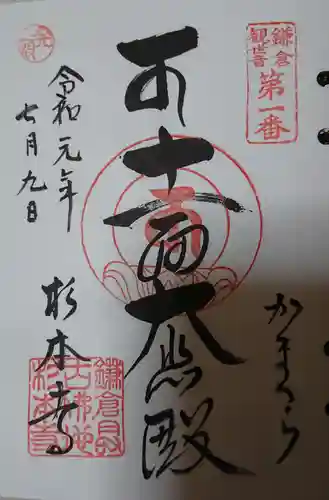 鎌倉
観世音
第一番
かまくら
十一面大悲殿
令和元年
七月九日
杉本寺
鎌倉最
古佛地
杉本寺